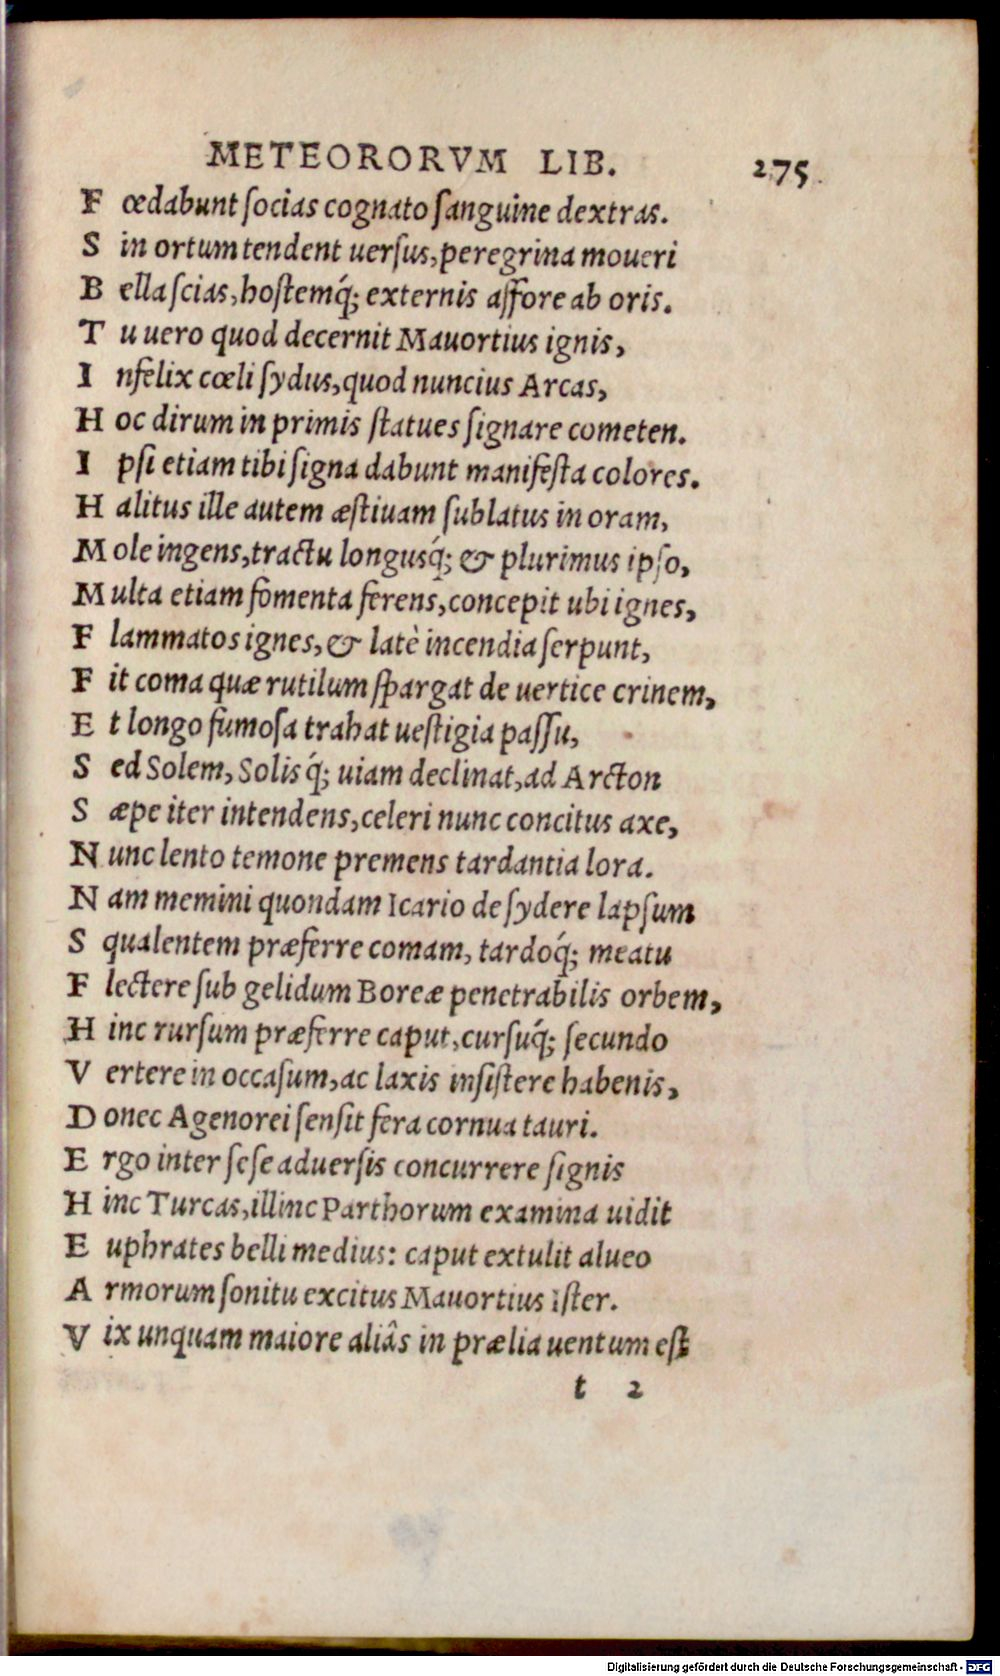 METEORORVM LIB. 275
F œdabunt ſocias cognato ſanguine dextras.
S in ortum tendent uerſus, peregrina moueri
B ella ſcias, hoſtemq́; externis affore ab oris.
T u uero quod decernit Mauortius ignis,
I nfelix cœli ſydus, quod nuncius Arcas,
H oc dirum in primis ſtatues ſignare cometen.
I pſi etiam tibi ſigna dabunt manifeſta colores.
H alitus ille autem æſtiuam ſublatus in oram,
M ole ingens, tractu longusq́; & plurimus ipſo,
M ulta etiam fomenta ferens, concepit ubi ignes,
F lammatos ignes, & latè incendia ſerpunt,
F it coma quæ rutilum ſpargat de uertice crinem,
E t longo fumoſa trahat ueſtigia paſſu,
S ed Solem, Solisq́; uiam declinat, ad Arcton
S æpe iter intendens, celeri nunc concitus axe,
N unc lento temone premens tardantia lora.
N am memini quondam Icario de ſydere lapſum
S qualentem præferre comam, tardoq́; meatu
F lectere ſub gelidum Boreæ penetrabilis orbem,
H inc rurſum præferre caput, curſuq́; ſecundo
V ertere in occaſum, ac laxis inſiſtere habenis,
D onec Agenorei ſenſit fera cornua tauri.
E rgo inter ſeſe aduerſis concurrere ſignis
H inc Turcas, illinc Parthorum examina uidit
E uphrates belli medius: caput extulit alueo
A rmorum ſonitu excitus Mauortius Iſter.
V ix unquam maiore aliâs in prælia uentum eſt
t 2
Digitalisierung gefördert durch die Deutsche Forschungsgemeinschaft - DFG